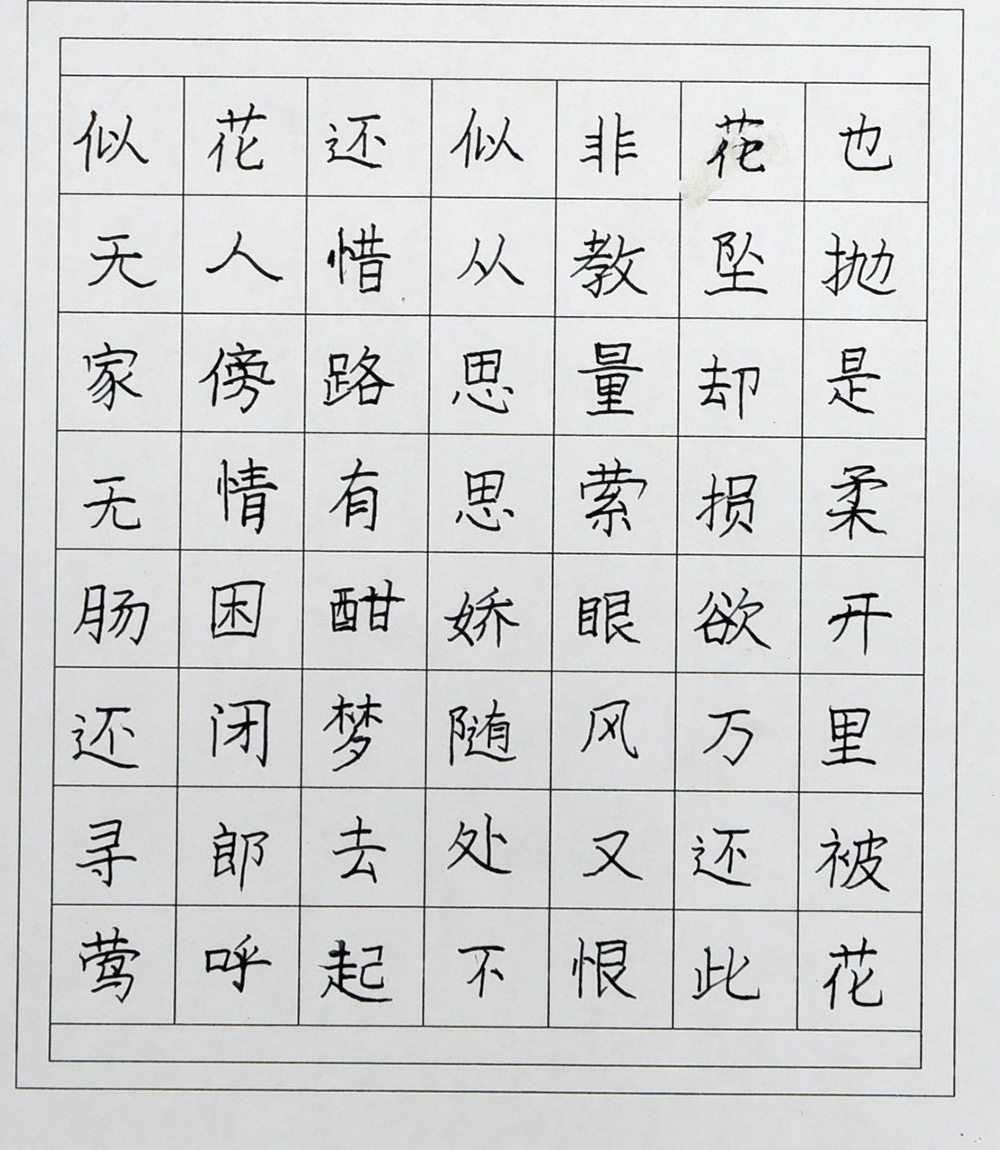 似花还似非花也
无人惜从教坠抛
家傍路思量却是
无情有思萦损柔
肠困酣娇眼欲开
还闭梦随风万里
寻郎去处又还被
莺呼起不恨此花